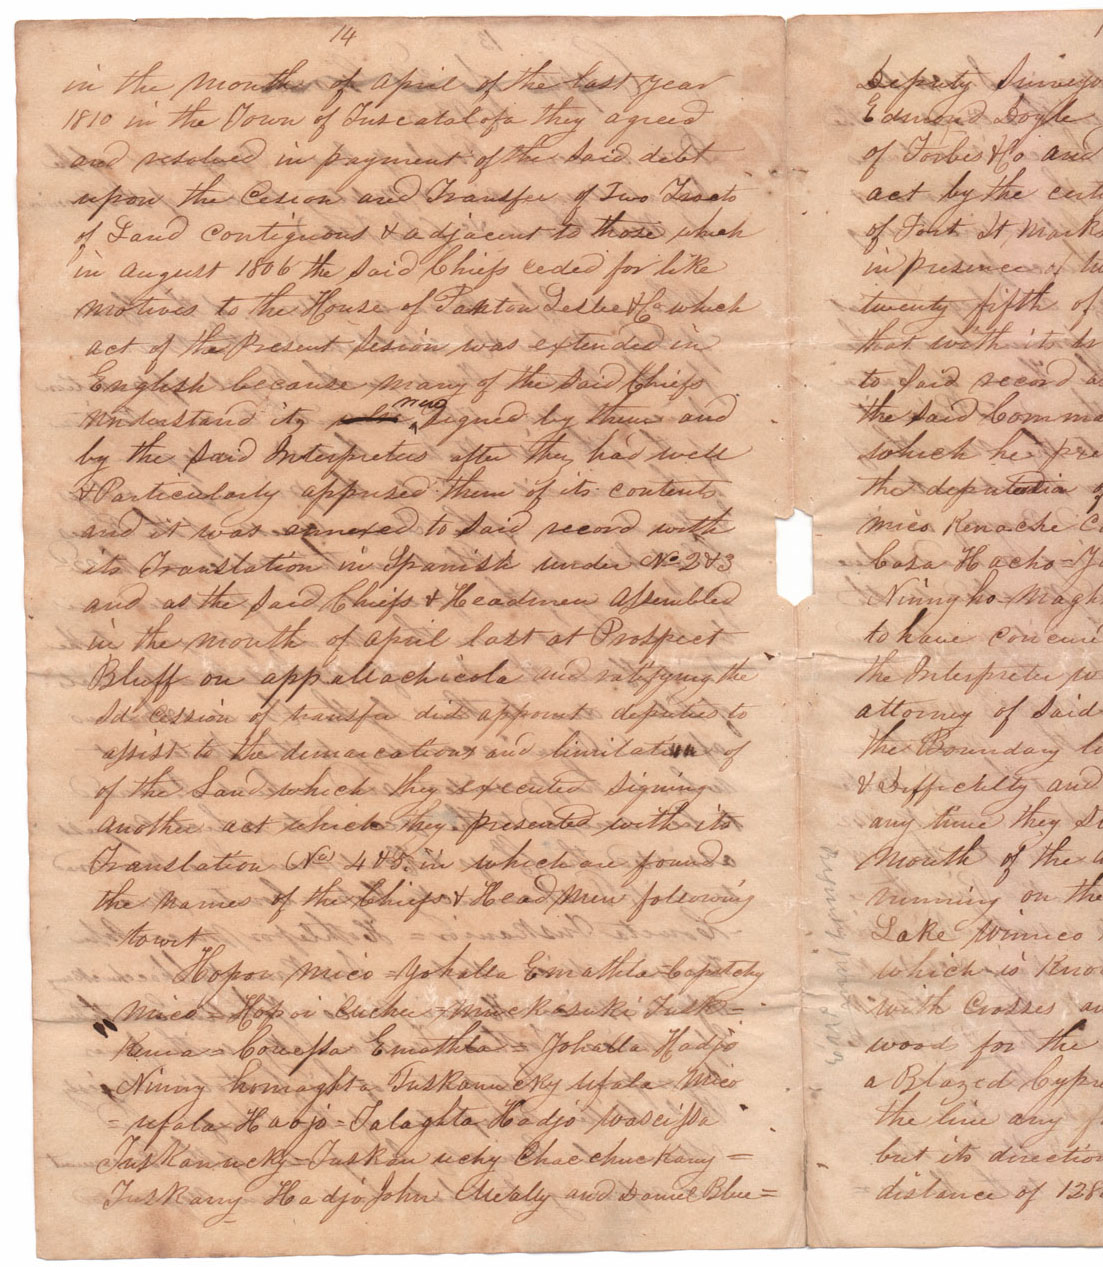 14
in the month of april of the last year
1810 in the Town of Tuscatalofa they agreed
and resolved in payment of the said debt
upon the Cesion and Transfer of Two Tracts
of Land contiguous & adjacent to those which
in august 1806 the said Chiefs ceded for like
motives to the House of Panton Leslie & Co which
act of the Present Sesion was extended in
English because many of the said Chiefs
understand it, signed by them and
by the said Interpreters after they had well
& Particularly apprised them of its contents
and it was annexed to said record with
its Translation in Spanish under No 2 & 3
and as the said Chiefs & Headmen assembled
in the month of april last at Prospect
Bluff on appallachicola and ratifying the
sd cession of transfer did appoint deputies to
assist to the demarcation and limitation of
of the Land which they executed signing
another act which they presented with its
Translation No 4 & 5. in which are found
the names of the Chiefs & Head men following
towit
Hopoi Mico = Yoholla Emathla = Capitchy
Mico = Hopoi Cuchu = Muckasuki Tusk=
Kenia = Coneffa Emathla = Yoholla Hadjo
Ninny homaghta Tuskanucky ufala Mico
= ufala Haojo = Talaghta Hadjo Wasceissa
Tuskanucky = Tuskanuchy Chacchuckany =
Tuskany Hadjo John Mealy and Daniel Blue=
Deputy Surveyo
Edmond Doyle
of Forbes & Co and
act by the cert
of Fort St Marks
in presence of tw
twenty fifth of
that with it br
to said record a
the said Comma
which he pre
the deputatia of
mico Kenache C
Casa Hacho = Yo
Ninny ho Magh
to have concur
the Interpreter w
attorney of said
the Boundary li
& Difficulty and
any time they S
Month of the A
running on the
Lake Wimico
which is Know
with Crosses an
woods for the
a Blazed Cypre
the line any f
but its direction
distance of 128